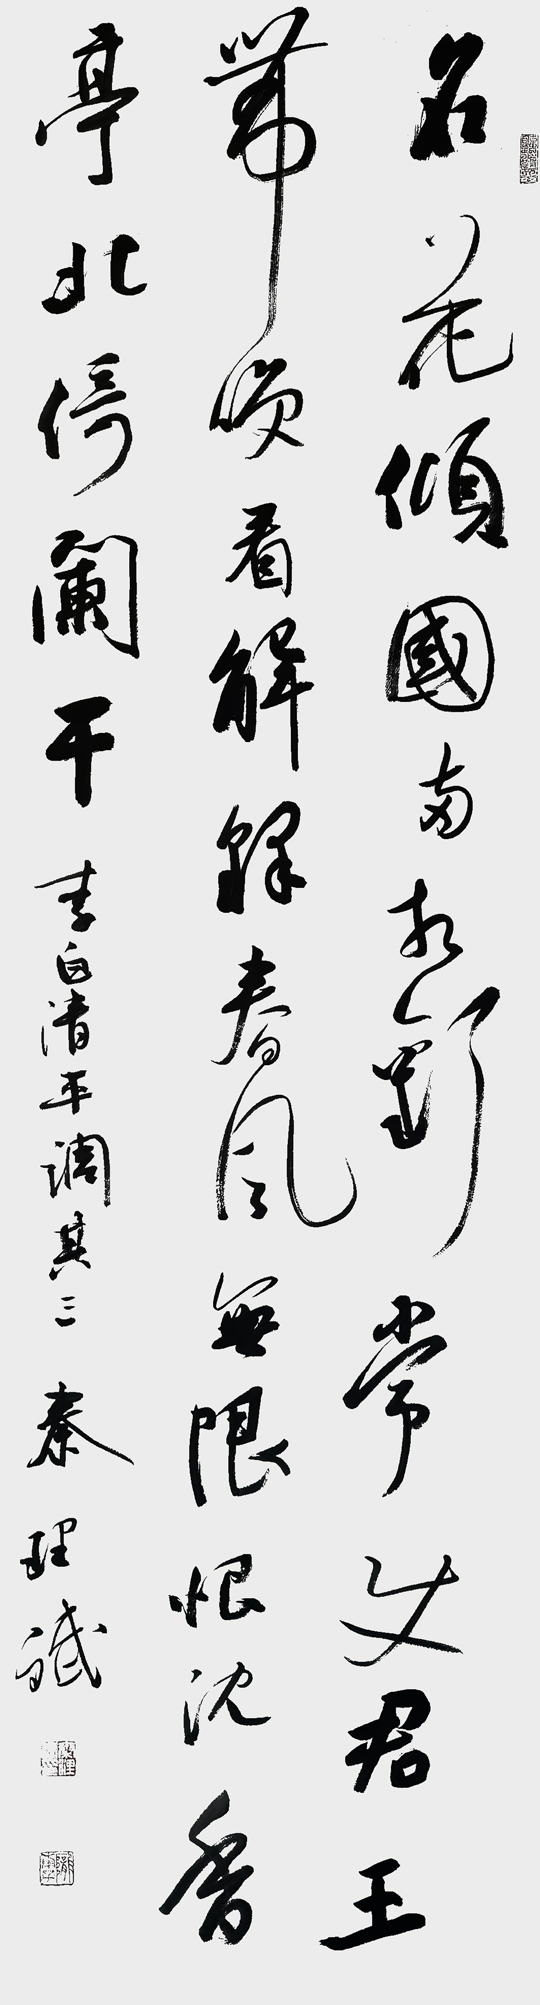 名花傾國両相歡常使君王
帶咲看解釋春風無限恨沈香
亭北倚闌干 李白清平調其三 秦理斌